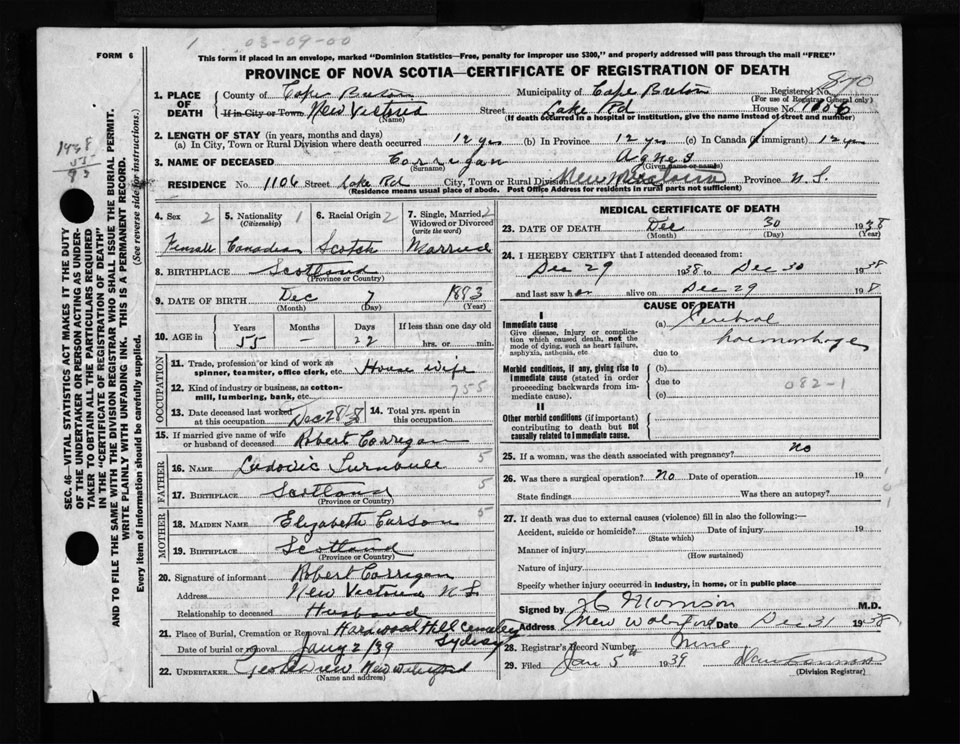 1 03-09-00
FORM 6
This form if placed in an envelope, marked "Dominion Statistics—Free, penalty for improper use $300," and properly addressed will pass through the mail "FREE"
PROVINCE OF NOVA SCOTIA—CERTIFICATE OF REGISTRATION OF DEATH
870
1. PLACE OF DEATH County of Cape Breton Municipality of Cape Breton Registered No.
(For use of Registrar General only)
If in City or Town New Victoria (Name) Street Lake Rd House No. 1106
(If death occurred in a hospital or institution, give the name instead of street and number)
2. LENGTH OF STAY (in years, months and days)
(a) In City, Town or Rural Division where death occurred 12 yrs (b) In Province 12 yrs (c) In Canada (if immigrant) 12 yrs
3. NAME OF DECEASED Corrigan Agnes
(Surname) (Given name or names)
RESIDENCE No. 1106 Street Lake Rd City, Town or Rural Division New Victoria Province N.S.
(Residence means usual place of abode. Post Office Address for residents in rural parts not sufficient)
4. Sex 2 5. Nationality 1 6. Racial Origin 2 7. Single, Married 2 Widowed or Divorced (write the word)
Female Canadian Scotch Married
8. BIRTHPLACE Scotland
(Province or Country)
9. DATE OF BIRTH Dec 7 1883
(Month) (Day) (Year)
10. AGE in Years Months Days If less than one day old
55 — 22 hrs. or min.
OCCUPATION
11. Trade, profession or kind of work as spinner, teamster, office clerk, etc. House wife
12. Kind of industry or business, as cotton-mill, lumbering, bank, etc. 755
13. Date deceased last worked at this occupation Dec 28-38 14. Total yrs. spent in this occupation
15. If married give name of wife or husband of deceased Robert Corrigan
FATHER
16. NAME Ludovic Turnbull 5
17. BIRTHPLACE Scotland 5
(Province or Country)
MOTHER
18. MAIDEN NAME Elizabeth Carson 5
19. BIRTHPLACE Scotland
(Province or Country)
20. Signature of informant Robert Corrigan
Address New Victoria N.S.
Relationship to deceased Husband
21. Place of Burial, Cremation or Removal Hardwood Hill Cemetery Sydney
Date of burial or removal Jany 2/39
22. UNDERTAKER New Waterford
(Name and address)
MEDICAL CERTIFICATE OF DEATH
23. DATE OF DEATH Dec 30 1938
(Month) (Day) (Year)
24. I HEREBY CERTIFY that I attended deceased from:
Dec 29 1938 to Dec 30 1938
and last saw her alive on Dec 29 1938
CAUSE OF DEATH
I
Immediate cause (a) Cerebral haemorrhage
Give disease, injury or complication which caused death, not the mode of dying, such as heart failure, asphyxia, asthenia, etc
due to
Morbid conditions, if any, giving rise to immediate cause (stated in order proceeding backwards from immediate cause).
(b)
due to 082-1
(c)
II
Other morbid conditions (if important) contributing to death but not causally related to immediate cause.
25. If a woman, was the death associated with pregnancy? no
26. Was there a surgical operation? No Date of operation 19
State findings Was there an autopsy?
27. If death was due to external causes (violence) fill in also the following:—
Accident, suicide or homicide? Date of injury 19
(State which)
Manner of injury
(How sustained)
Nature of injury
Specify whether injury occurred in industry, in home, or in public place
Signed by Morrison M.D.
Address New Waterford Date Dec 31 1938
28. Registrar's Record Number Nine
29. Filed Jan 5th 1939
(Division Registrar)
SEC. 46—VITAL STATISTICS ACT MAKES IT THE DUTY
OF THE UNDERTAKER OR PERSON ACTING AS UNDER-
TAKER TO OBTAIN ALL THE PARTICULARS REQUIRED
IN THE "CERTIFICATE OF REGISTRATION OF DEATH"
AND TO FILE THE SAME WITH THE DIVISION REGISTRAR WHO SHALL ISSUE THE BURIAL PERMIT.
WRITE PLAINLY WITH UNFADING INK. THIS IS A PERMANENT RECORD.
Every item of information should be carefully supplied. (See reverse side for instructions.)
1938
55